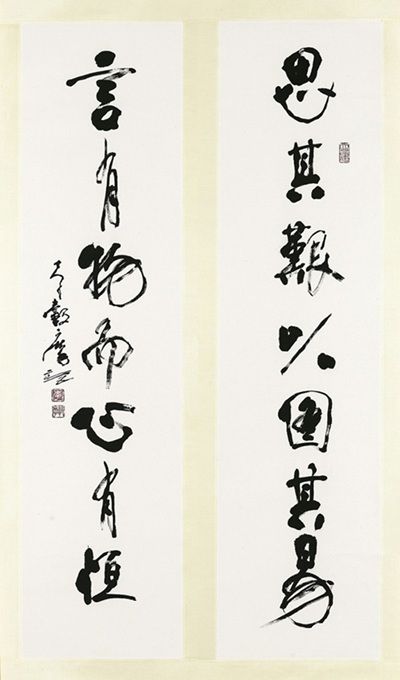 思其艱以圖其易
言有物而心有恒